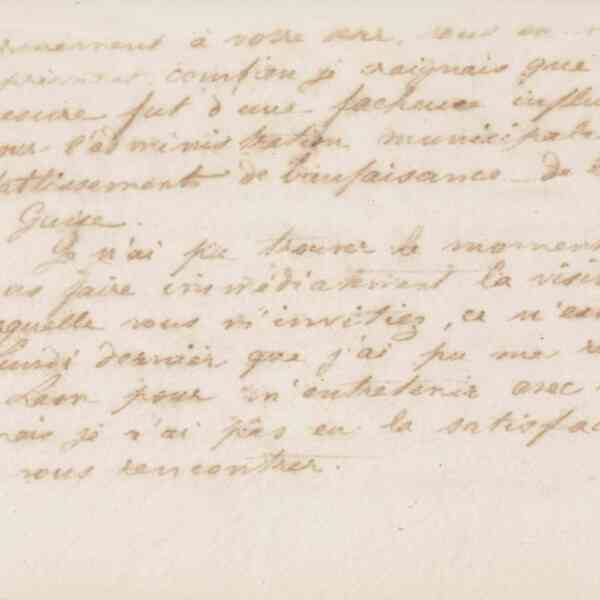 à votre
combien je craignais que
fut d'une facheuse influ
l'administration municipale
de bienfaisance de
Guise.
Je n'ai pu trouver le moment
faire immédiatement la visi
laquelle vous m'invitiez, ce n'es
Lundi dernier que j'ai pu me
Laon pour m'entretenir avec
mais je n'ai pas eu la satisfac
vous rencontrer.